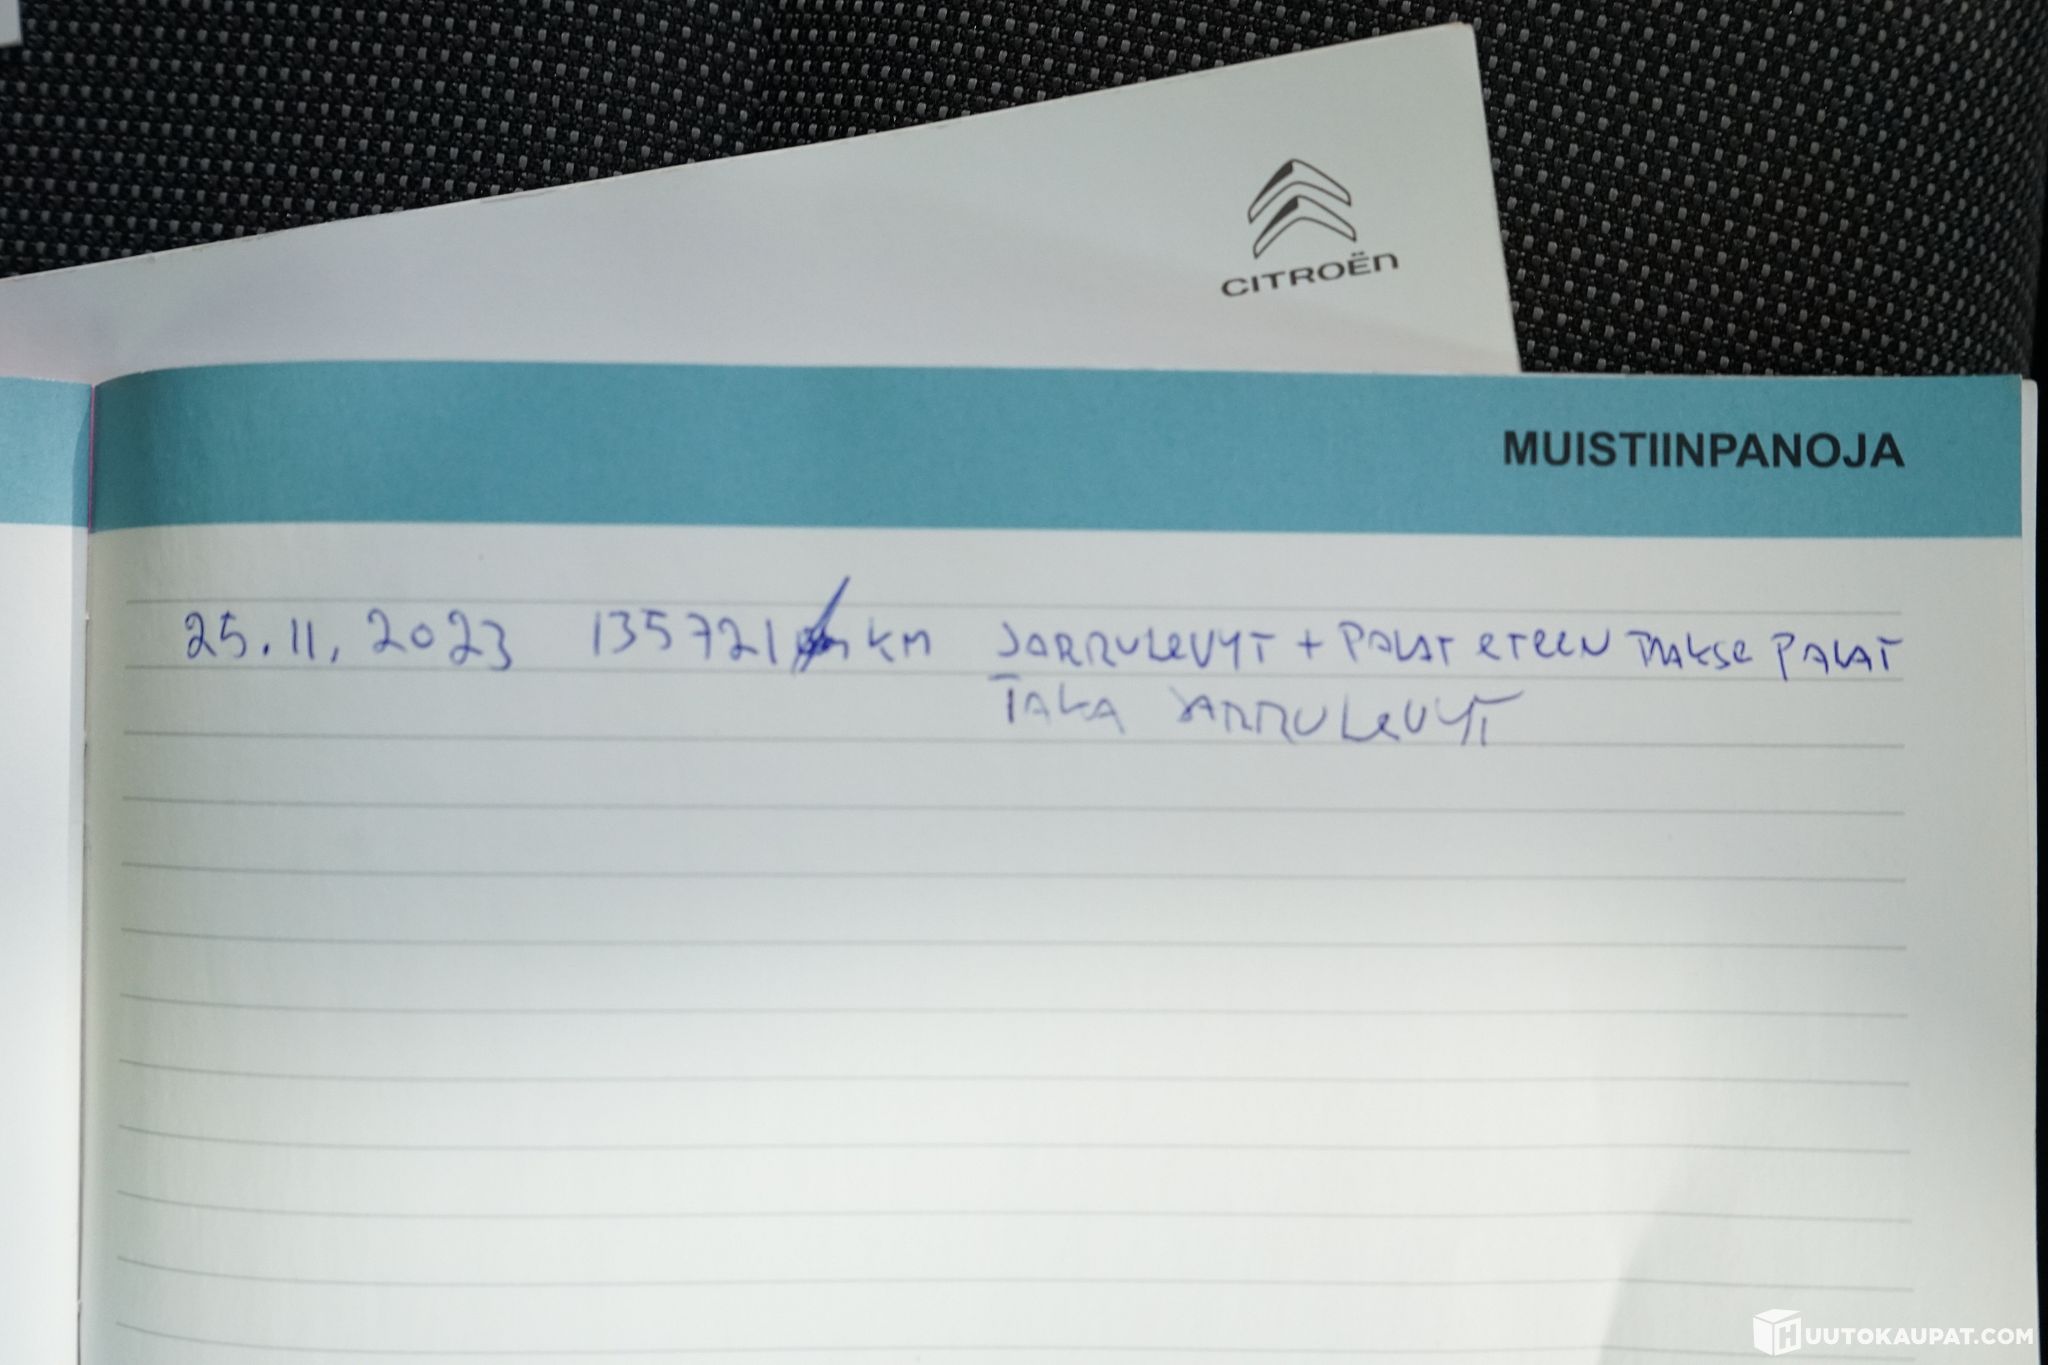 CITROËN
MUISTIINPANOJA
25.11.2023 135721 KM JARRULEVYT + PALAT ETEEN TAAKSE PALAT
TAKA JARRULEVYT
HUUTOKAUPAT.COM